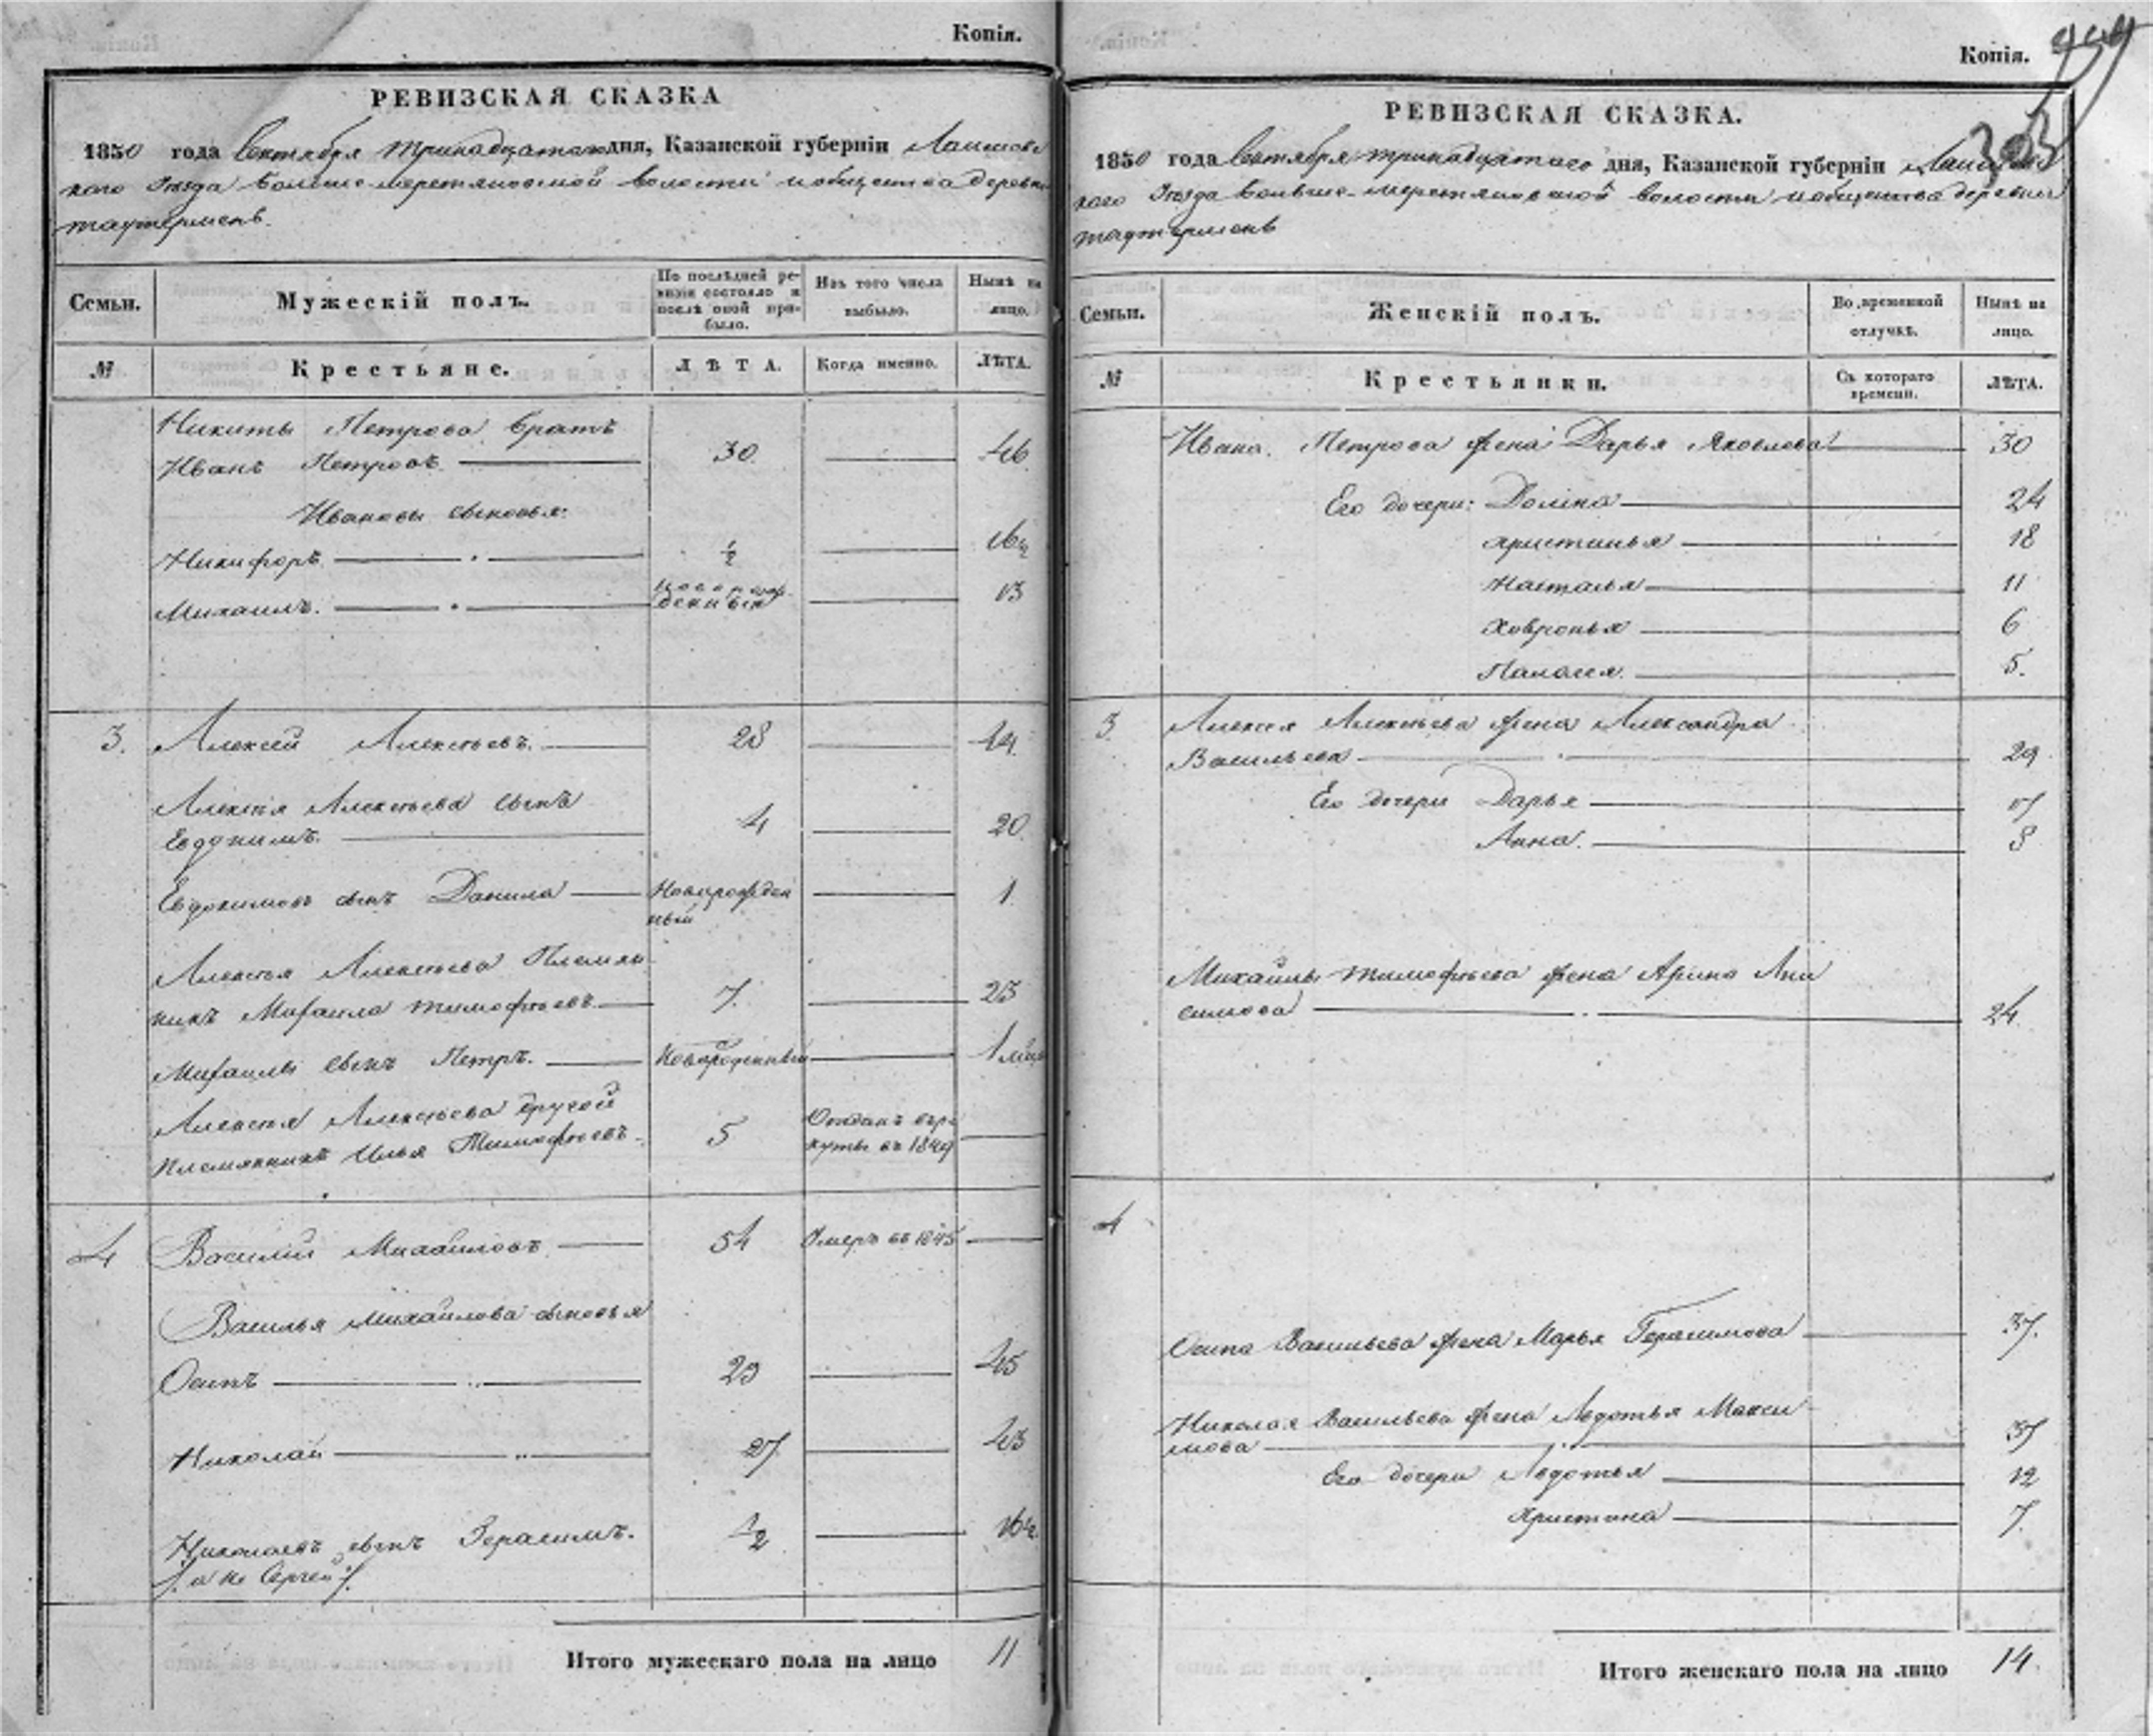 Копія.
РЕВИЗСКАЯ СКАЗКА
1850 года Сентября тринадцатаго дня, Казанской губерніи Лаишевс
каго Уѣзда Больше-меретяковской волости и общества деревни
таутермень.
Семьи.
Мужескій полъ.
По послѣдней ре-
визіи состояло и
послѣ оной при-
было.
Изъ того числа
выбыло.
Нынѣ на
лицо.
№
Крестьяне.
ЛѢТА.
Когда именно.
ЛѢТА.
Никиты Петрова братъ
Иванъ Петровъ 30 46
Ивановы сыновья:
Никифоръ ½ 16½
Михаилъ. новорож-
денный 13
3. Алексей Алексѣевъ. 28 44
Алексѣя Алексѣева сынъ
Евдокимъ. 4 20
Евдокимовъ сынъ Данила Новорожден 1
ный
Алексѣя Алексѣева Племян
никъ Михаила тимофѣевъ 7. 23
Михаилы сынъ Петръ. Новорожденный 1 мѣся
Алексѣя Алексѣева другой
племянникъ Илья Тимофѣевъ 5 Отданъ въ ре-
круты въ 1849
4 Василий Михайловъ 54 Умеръ въ 1845
Василья Михайлова сыновья
Осипъ 29 45
Николай 27 43
Николаевъ сынъ Герасимъ. ½ 16½
/: а не Сергей :/
Итого мужескаго пола на лицо 11
Копія.
303
РЕВИЗСКАЯ СКАЗКА.
1850 года Сентября тринадцатаго дня, Казанской губерніи Лаишевс
каго Уѣзда Больше-меретяковской волости и общества деревни
таутермень
Семьи.
Женскій полъ.
Во временной
отлучкѣ.
Нынѣ на
лицо.
№
Крестьянки.
Съ котораго
времени.
ЛѢТА.
Ивана Петрова жена Дарья Яковлева 30
Его дочери: Домна 24
Христинья 18
Наталья 11
Ховронья 6
Палагея 5.
3 Алексея Алексѣева жена Александра
Васильева 29
Его дочери Дарья 17
Анна. 8
Михайлы тимофѣева жена Арина Ани
симова 24.
4
Осипа Васильева жена Марья Герасимова 37.
Николая Васильева жена Авдотья Макси
мова 37
Его дочери Авдотья 12
Христина 7.
Итого женскаго пола на лицо 14.